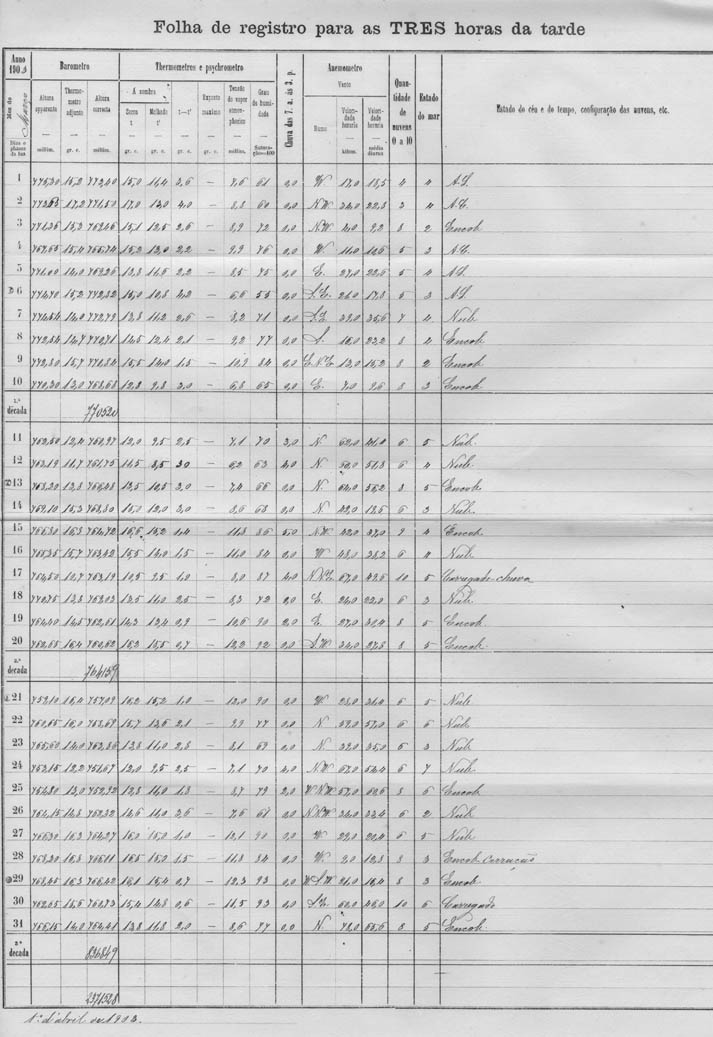 Folha de registro para as TRES horas da tarde
Anno 1903 Barometro Thermometros e psychrometro Chuva das 7. a. ás 3. p. Anemometro Quantidade de nuvens 0 a 10 Estado do mar Estado do céu e do tempo, configuração das nuvens, etc.
Mez de Março Altura apparente Thermometro adjunto Altura correcta Á sombra t—t' Exposto maximo Tensão do vapor atmospherico Grau de humidade Vento
Secco t Molhado t' Rumo Velocidade horaria Velocidade horaria
Dias e phases da lua millim. gr. c. millim. gr. c. gr. c. gr. c. gr. c. millim. Saturação=100 kilom. média diurna
1 776,30 15,2 772,40 15,0 11,4 3,6 — 7,6 61 0,0 W 17,0 18,5 4 4
2 17,2 771,50 17,0 13,0 4,0 — 8,8 60 0,0 N.W 34,0 22,8 3 4
3 15,3 769,46 15,1 12,5 2,6 — 8,9 72 0,0 N.W 4,0 9,2 8 2 Encob.
4 15,4 15,2 13,0 2,2 — 9,9 76 0,0 W. 11,0 10,6 5 3
5 14,0 769,26 13,8 11,6 2,2 — 8,5 75 0,0 E. 27,0 22,6 5 4
6 15,2 772,32 15,0 10,8 4,2 — 6,6 55 0,0 S.E. 26,0 17,3 5 3
7 14,0 13,8 11,2 2,6 — 8,2 71 0,0 S.E 38,0 35,6 7 4 Nub.
8 14,7 14,5 12,4 2,1 — 9,2 77 0,0 S. 18,0 23,2 8 4 Encob.
9 15,7 15,5 14,0 1,5 — 10,9 84 0,0 E.N.E 13,0 15,2 8 2 Encob.
10 770,30 13,0 768,68 12,8 9,8 3,0 — 6,8 65 0,0 E. 7,0 9,6 8 3 Encob.
1.ª década 770520
11 762,50 12,4 760,97 12,0 9,5 2,5 — 7,1 70 3,0 N 62,0 41,0 6 5 Nub.
12 763,19 11,7 761,75 11,5 8,5 3,0 — 6,2 63 4,0 N 50,0 51,8 6 4 Nub.
13 768,20 13,8 766,48 13,5 10,5 3,0 — 7,4 66 0,0 N. 64,0 56,2 8 5 Encob.
14 15,3 15,0 12,0 3,0 — 8,6 68 0,0 N 22,0 18,6 6 3 Nub.
15 766,80 16,3 764,72 16,6 15,2 1,4 — 11,8 86 5,0 N.W 42,0 37,0 9 4 Encob.
16 765,35 15,7 763,42 15,5 14,0 1,5 — 11,0 84 0,0 W 48,0 38,2 6 4 Nub.
17 764,50 10,7 763,19 10,5 9,5 1,0 — 8,0 87 4,0 N.N.E 67,0 43,6 10 5 Carregado-chuva
18 13,8 13,5 11,0 2,5 — 8,3 72 0,0 E. 24,0 22,0 6 3 Nub.
19 764,40 14,5 762,61 14,3 13,4 0,9 — 10,6 90 2,0 E. 27,0 30,4 8 5 Encob.
20 762,65 16,4 760,62 16,2 15,5 0,7 — 12,2 92 0,0 S.W. 34,0 27,3 8 5 Encob.
2.ª década 764159
21 759,10 16,4 757,09 16,2 15,2 1,0 — 12,0 90 0,0 W 28,0 36,4 6 5 Nub.
22 16,0 15,7 13,6 2,1 — 9,9 77 0,0 N 59,0 57,0 6 6 Nub.
23 14,0 13,8 11,0 2,8 — 8,1 69 0,0 N. 39,0 35,0 5 3 Nub.
24 753,15 12,2 751,67 12,0 9,5 2,5 — 7,1 70 4,0 N.W. 67,0 54,4 6 7 Nub.
25 13,0 12,8 11,0 1,8 — 8,7 79 2,0 W.N.W 57,0 60,6 8 6 Encob.
26 764,15 14,8 762,32 14,6 11,0 3,6 — 7,6 61 0,0 N.N.W 34,0 33,4 6 2 Nub.
27 766,30 16,3 764,27 16,0 15,0 1,0 — 12,1 90 0,0 W. 22,0 20,4 6 5 Nub.
28 768,20 16,8 766,11 16,5 15,0 1,5 — 11,8 84 0,0 W. 9,0 12,8 8 3 Encob. cerração
29 768,45 16,3 766,42 16,1 15,4 0,7 — 12,3 93 0,0 W.S.W 21,0 18,4 8 3 Encob.
30 762,65 15,6 760,73 15,4 14,8 0,6 — 11,5 93 0,0 S.E. 60,0 46,0 10 6 Carregado
31 766,15 14,0 764,41 13,8 11,8 2,0 — 8,6 77 0,0 N. 78,0 65,6 8 5 Encob.
3.ª década 836849
2371528
1.º d'abril de 1903.